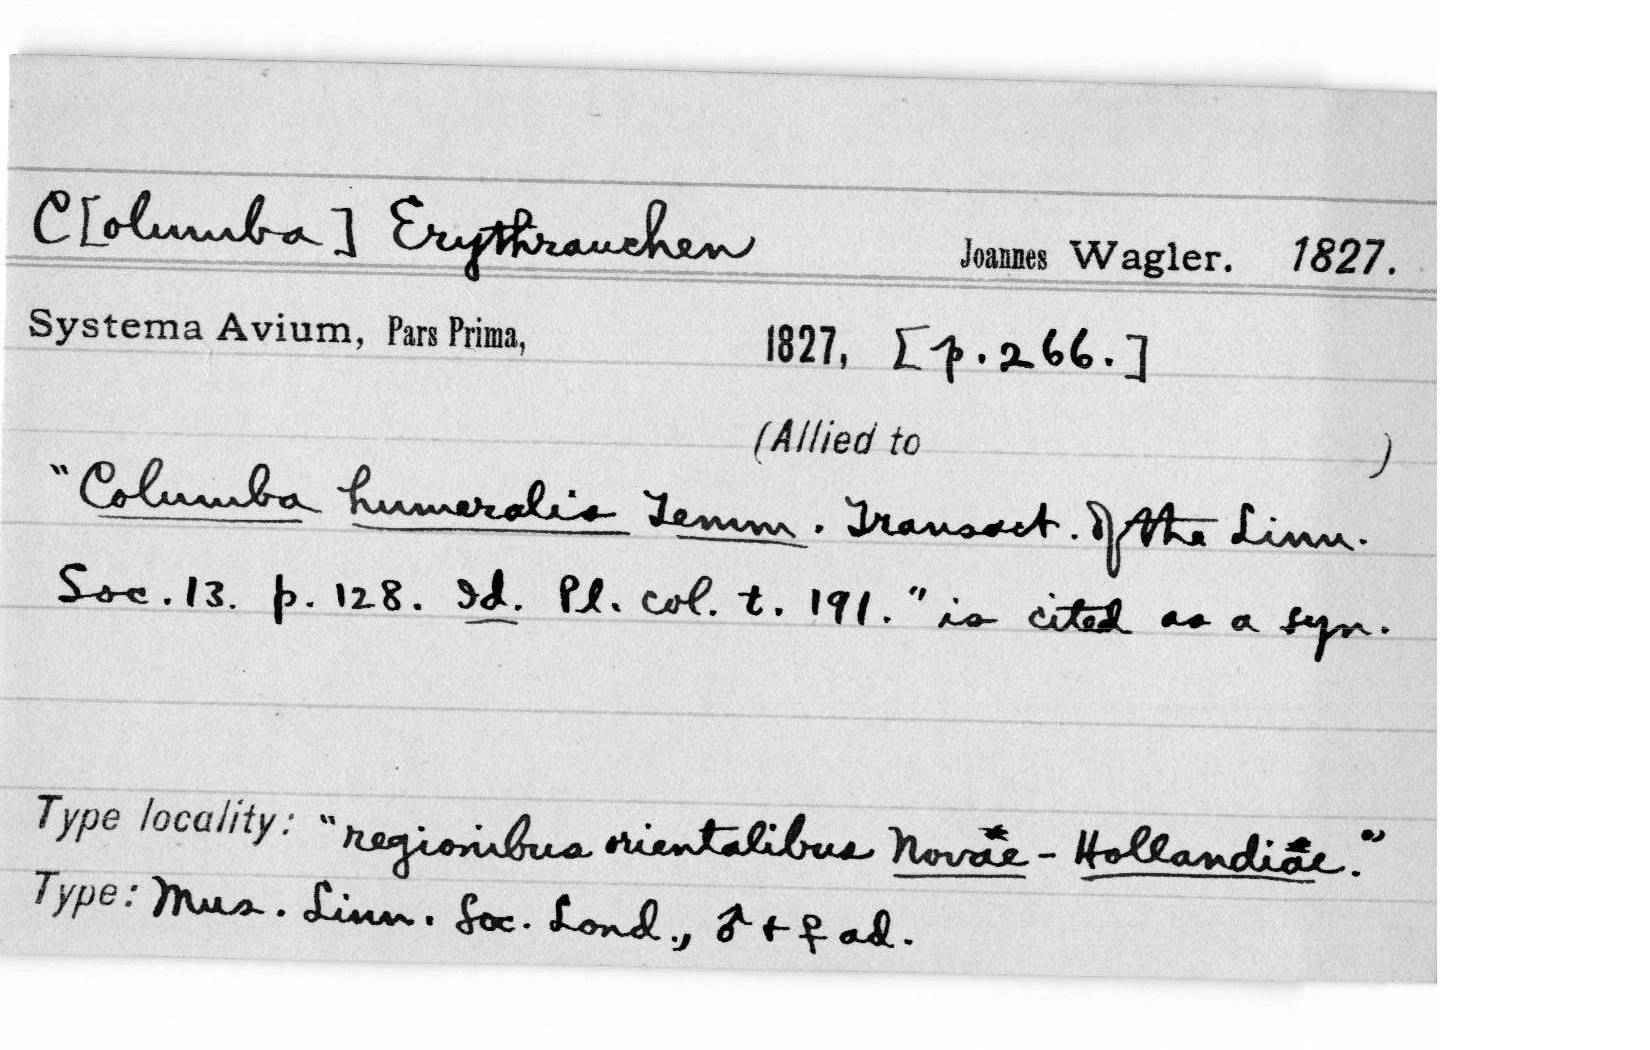 C[olumba] Erythrauchen Joannes Wagler. 1827.
Systema Avium, Pars Prima, 1827, [p. 266.]
(Allied to )
"Columba humeralis Temm. Transact. of the Linn.
Soc. 13. p. 128. Id. Pl. col. t. 191." is cited as a syn.
Type locality: "regionibus orientalibus Novae - Hollandiae."
Type: Mus. Linn. Soc. Lond., ♂ + ♀ ad.